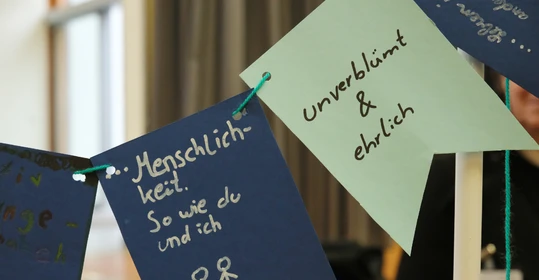 Menschlich-
keit.
So wie du
und ich
unverblümt
&
ehrlich